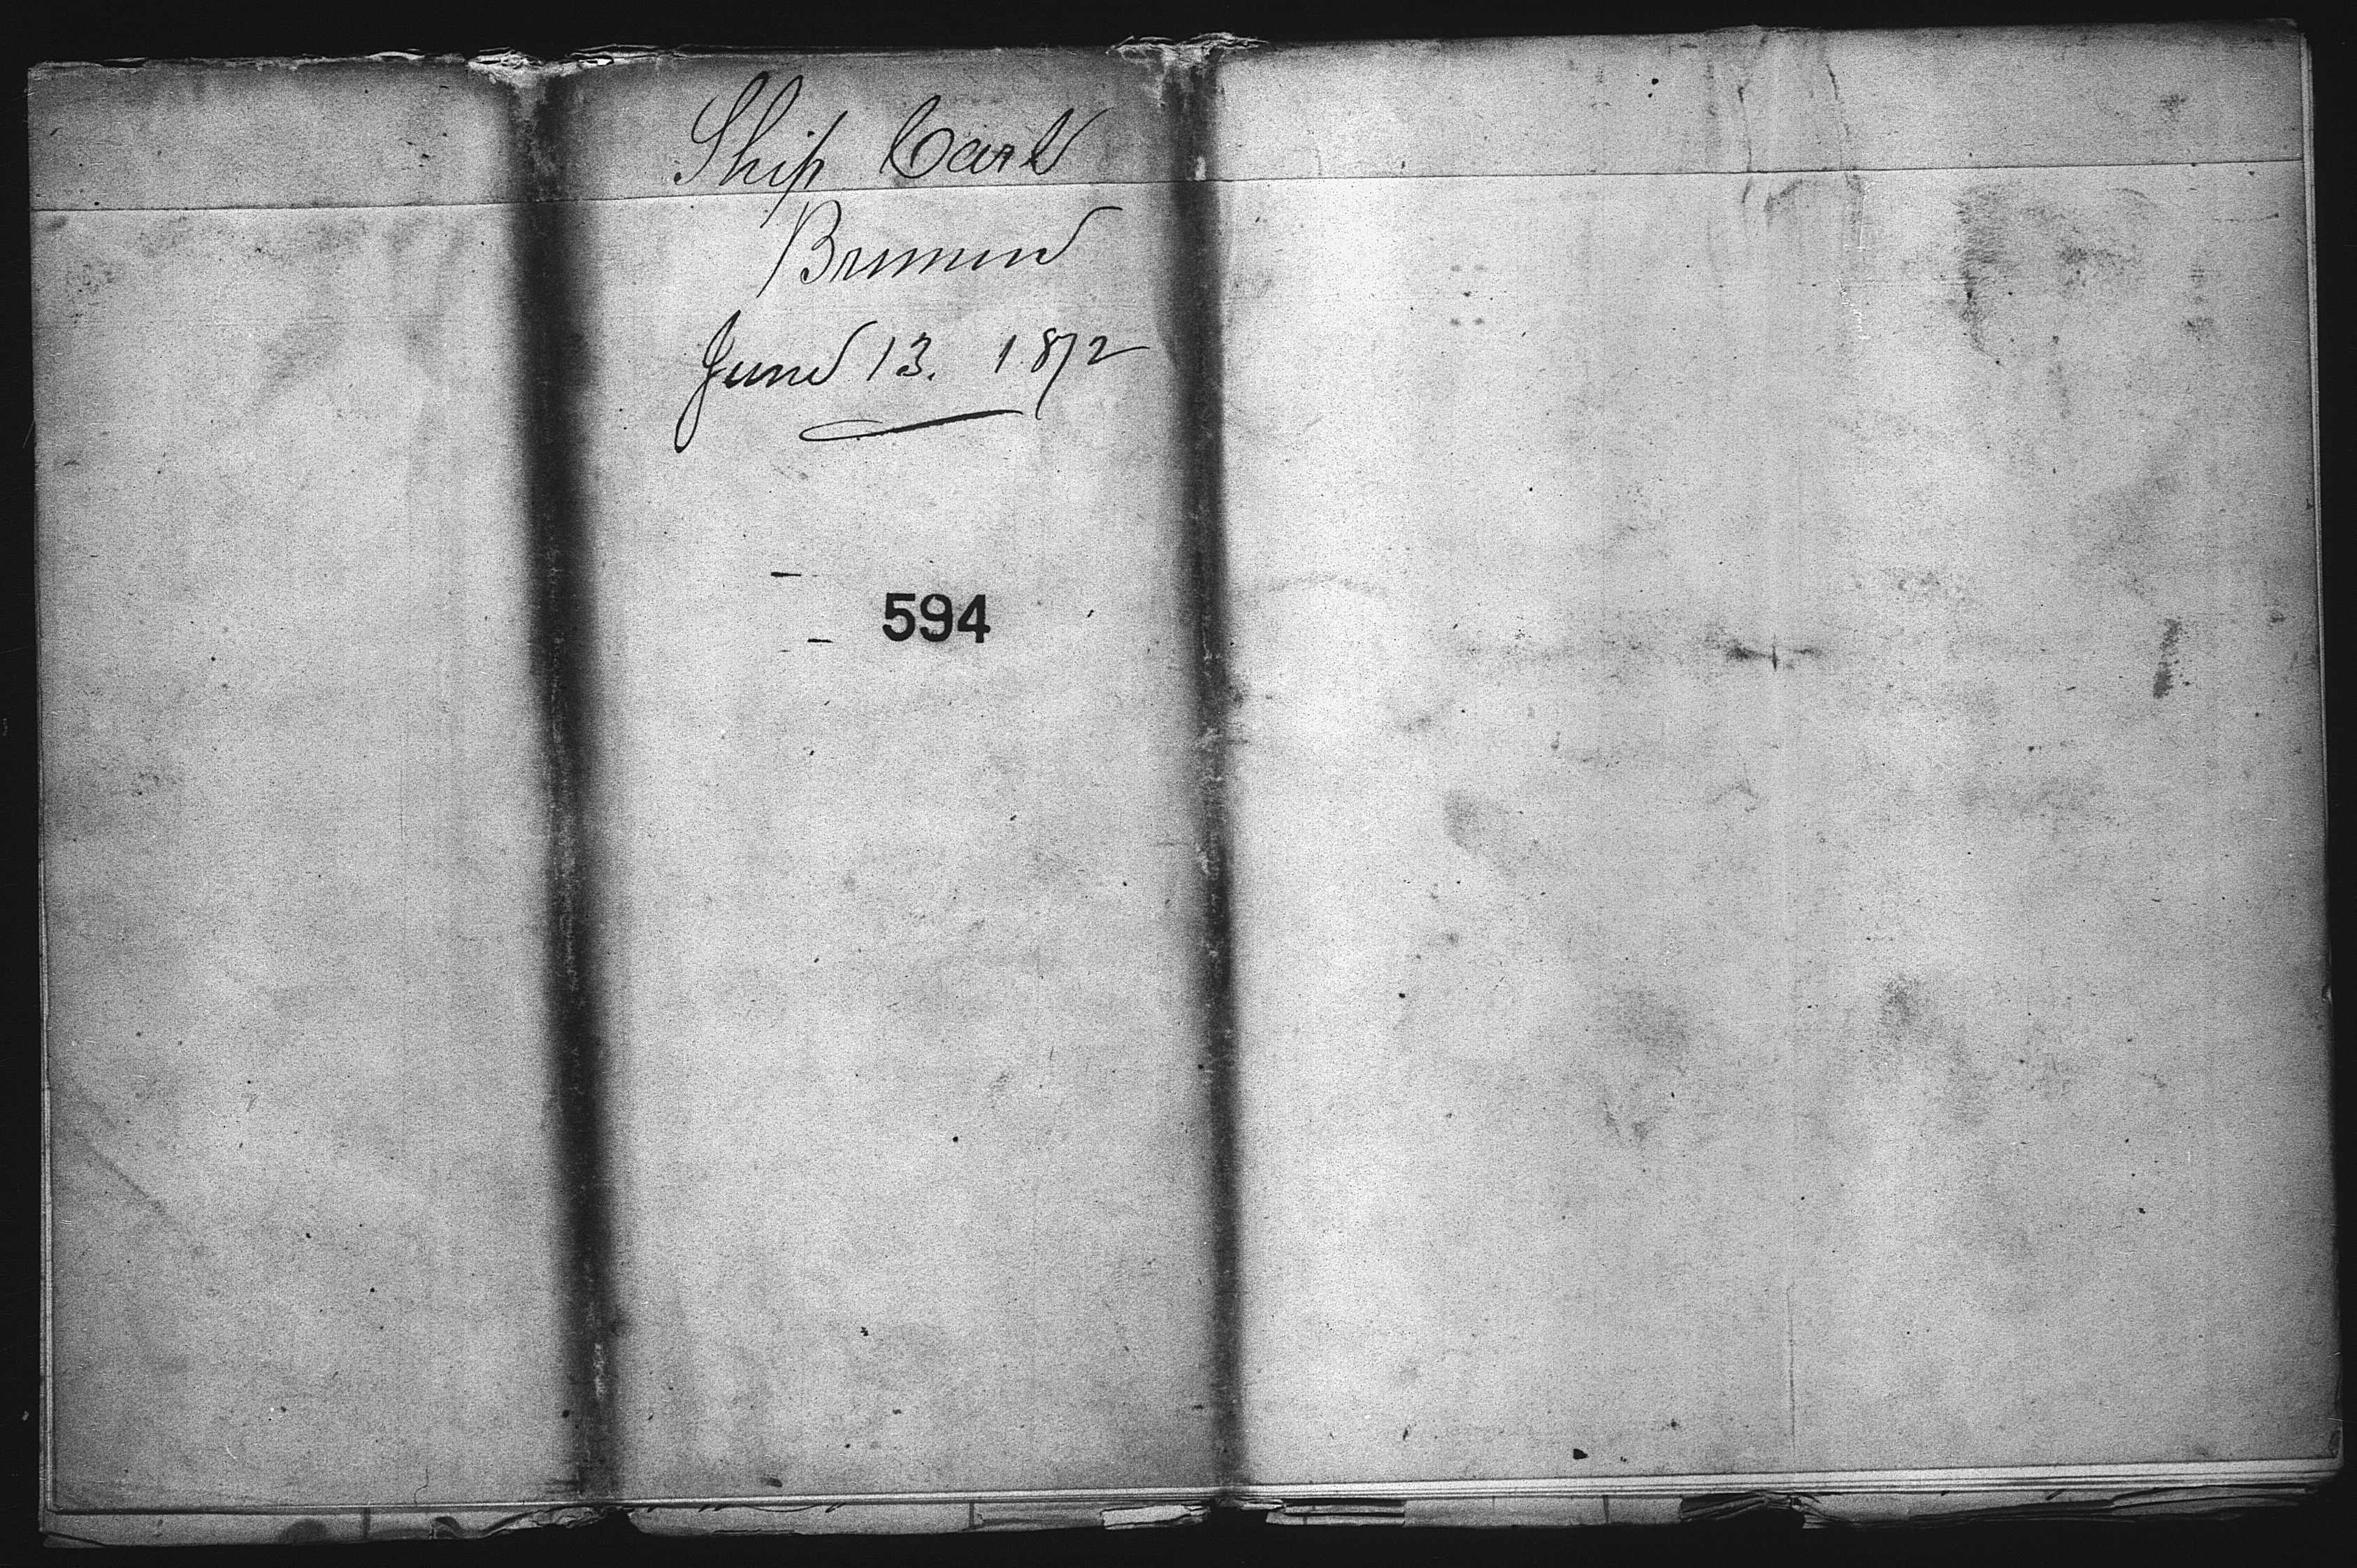 Ship Carl
Bremen
June 13. 1872
594